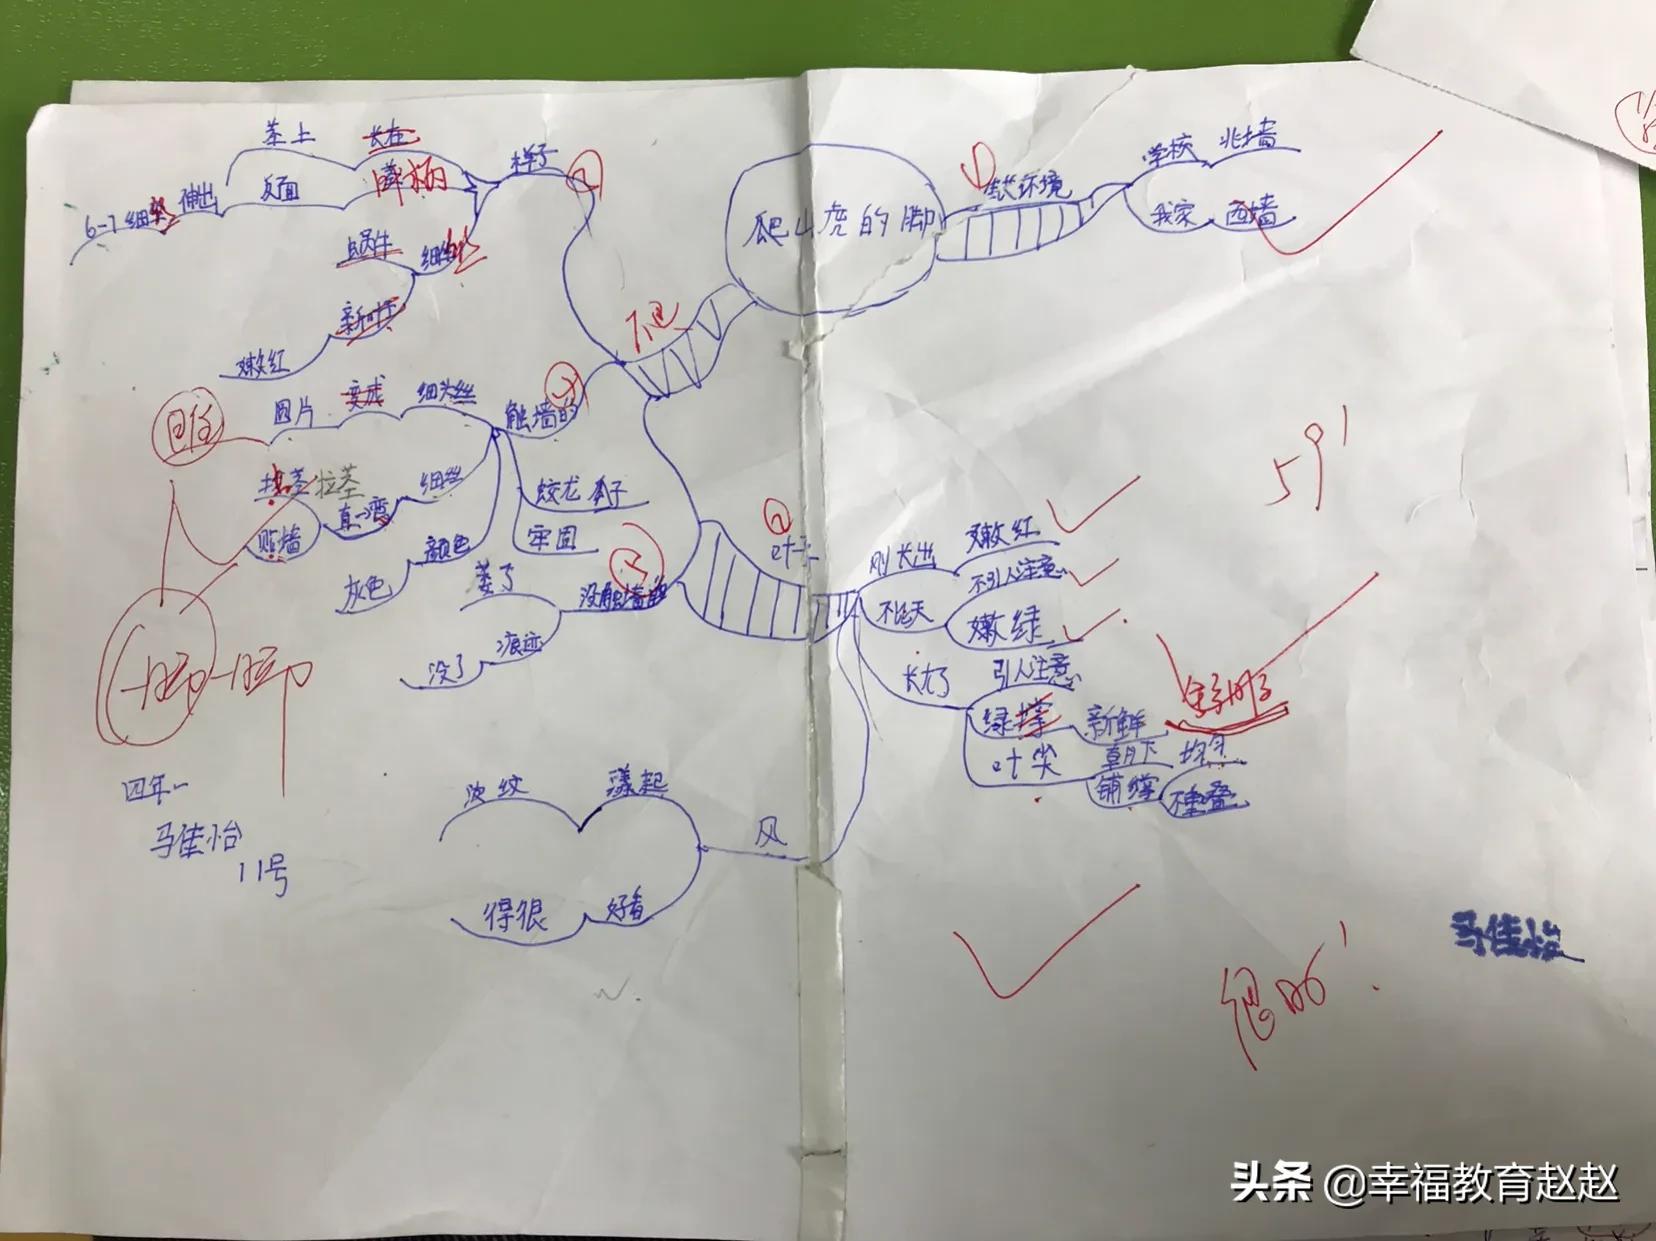 爬山虎的脚
生长环境
学校 北墙
我家 西墙
茎上 长在
反面
样子
6-7细丝 伸出
蜗牛 细丝
新叶子
嫩红
圆片 变成 细头丝
触墙的
拉茎
细丝
直→弯
贴墙
蛟龙爪子
牢固
颜色
灰色
萎了
没触墙的
痕迹
没了
叶子
刚长出 嫩红
不引人注意
不几天 嫩绿
长大了 引人注意
新鲜
叶尖 朝下 均匀
铺
不重叠
风
波纹 漾起
得很 好看
59'
一脚一脚
四年一
马佳怡
11号
马佳怡
头条 @幸福教育赵赵